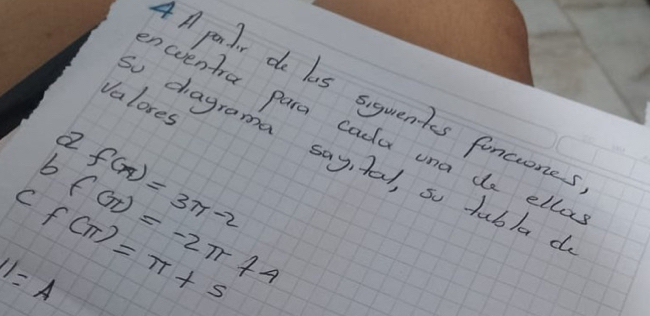 4 A partir de las siguientes funciones,
encuentra para cada una de ellas
su diagrama saytal, su tabla de
valores
a f(π) = 3π-2
b f(π) = -2π+4
c f(π) = π+5
11= A